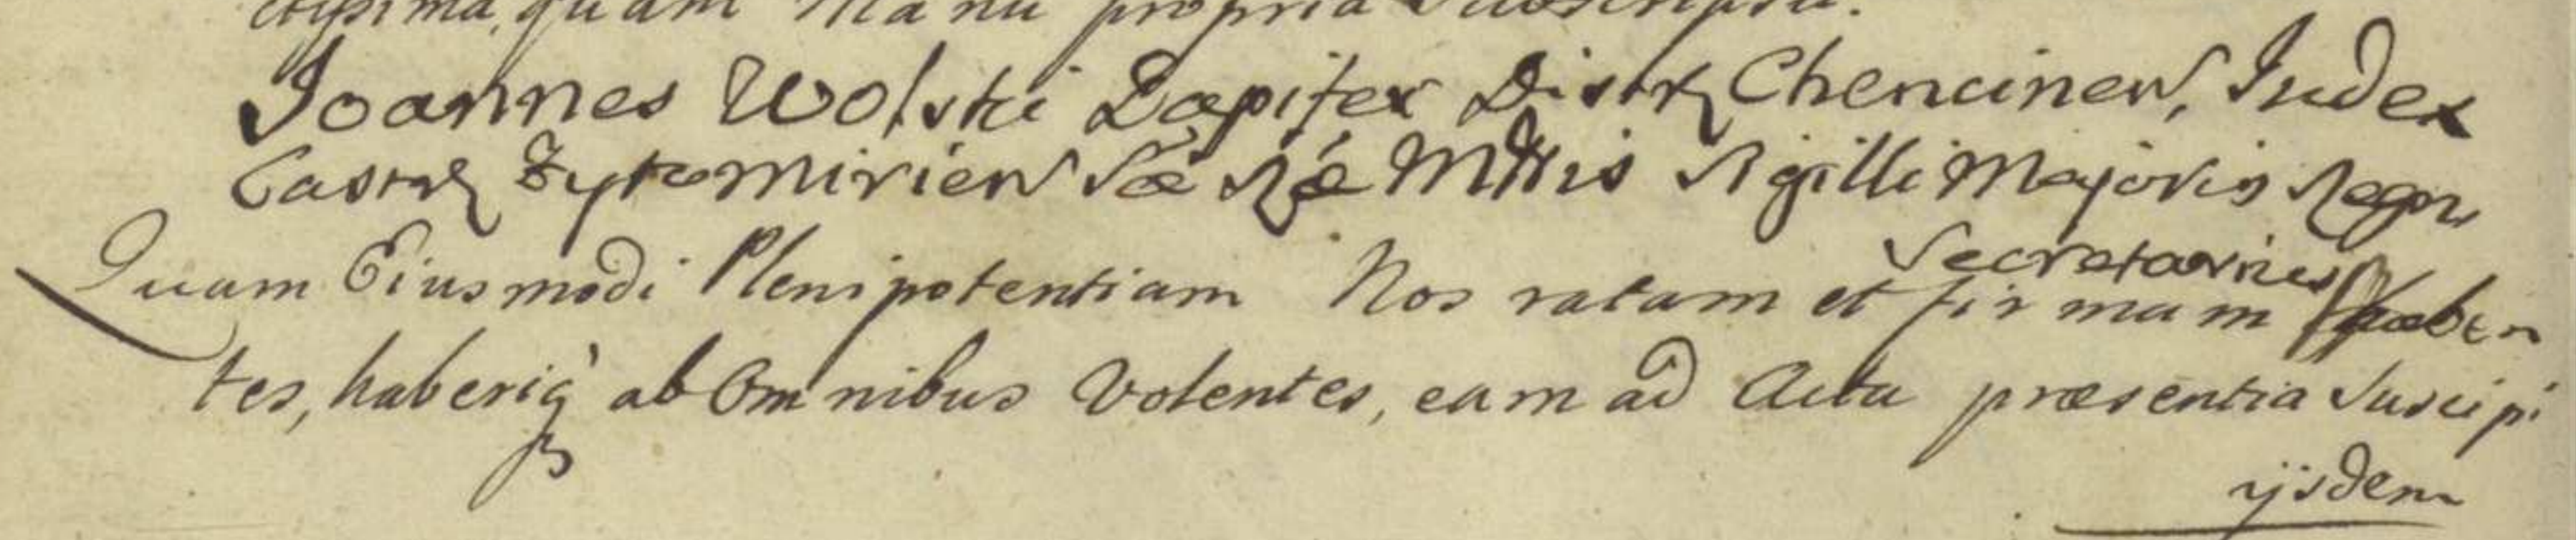 quam Manu propria
Joannes Wolski Dapifer Distr Chencinen, Judex
Castr Zytomirien Sæ Ræ Mttis Sigilli Majoris Regni
Secretarius
Quam Eiusmodi Plenipotentiam Nos ratam et firmam haben
tes, haberiq ab Omnibus Volentes, eam ad Acta præsentia Suscipi
ijsdem